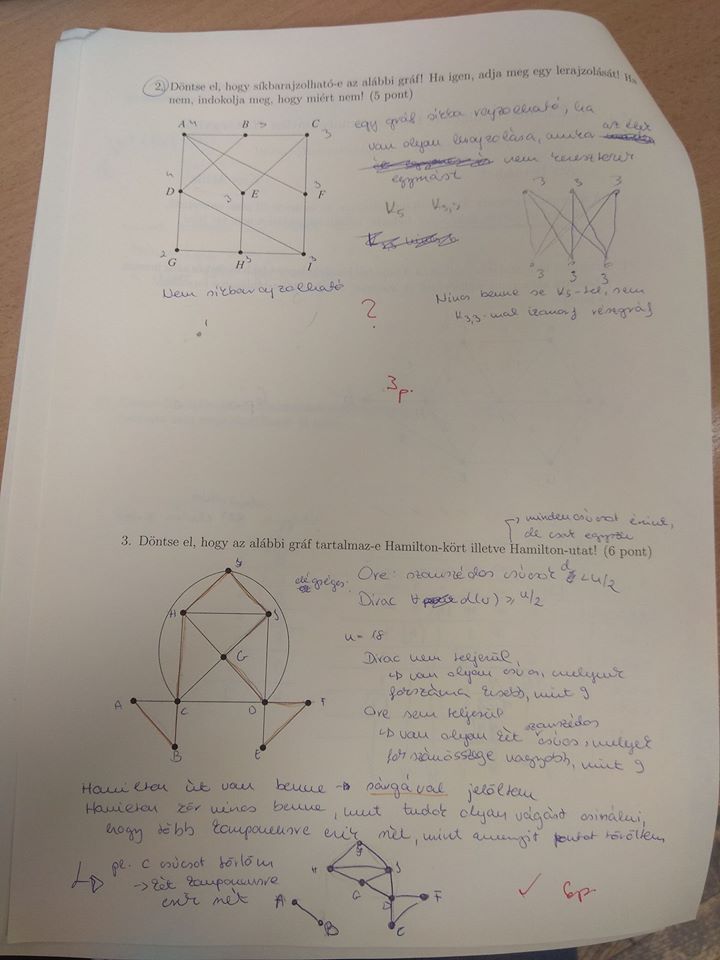 2. Döntse el, hogy síkbarajzolható-e az alábbi gráf! Ha igen, adja meg egy lerajzolását! Ha
nem, indokolja meg, hogy miért nem! (5 pont)
A 4 B 3 C 3
egy gráf síkba rajzolható, ha
van olyan lerajzolása, amire az élek
nem keresztezik
egymást
4 D 3 E 3 F
K5 K3,3
3 3 3
2 G 3 H 3 I
3 3 3
Nem síkbarajzolható
Nincs benne se K5-tel, sem
K3,3-mal izomorf részgráf
?
3p.
minden csúcsot érint,
de csak egyszer
3. Döntse el, hogy az alábbi gráf tartalmaz-e Hamilton-kört illetve Hamilton-utat! (6 pont)
elégséges:
Ore: szomszédos csúcsok d < n/2
Dirac ∀ d(v) ≥ n/2
H J
G
n = 18
Dirac nem teljesül,
↳ van olyan csúcs, melynek
fokszáma kisebb, mint 9
A C D F
Ore sem teljesül
↳ van olyan két szomszédos csúcs, melyek
fokszámösszege nagyobb, mint 9
B E
Hamilton út van benne → sárgával jelöltem
Hamilton kör nincs benne, mert tudok olyan vágást csinálni,
hogy több komponensre esik szét, mint amennyit pontot töröltem
pl. C csúcsot törlöm
→ két komponensre
esik szét
H J
G D F
A B E
✓ 6p.